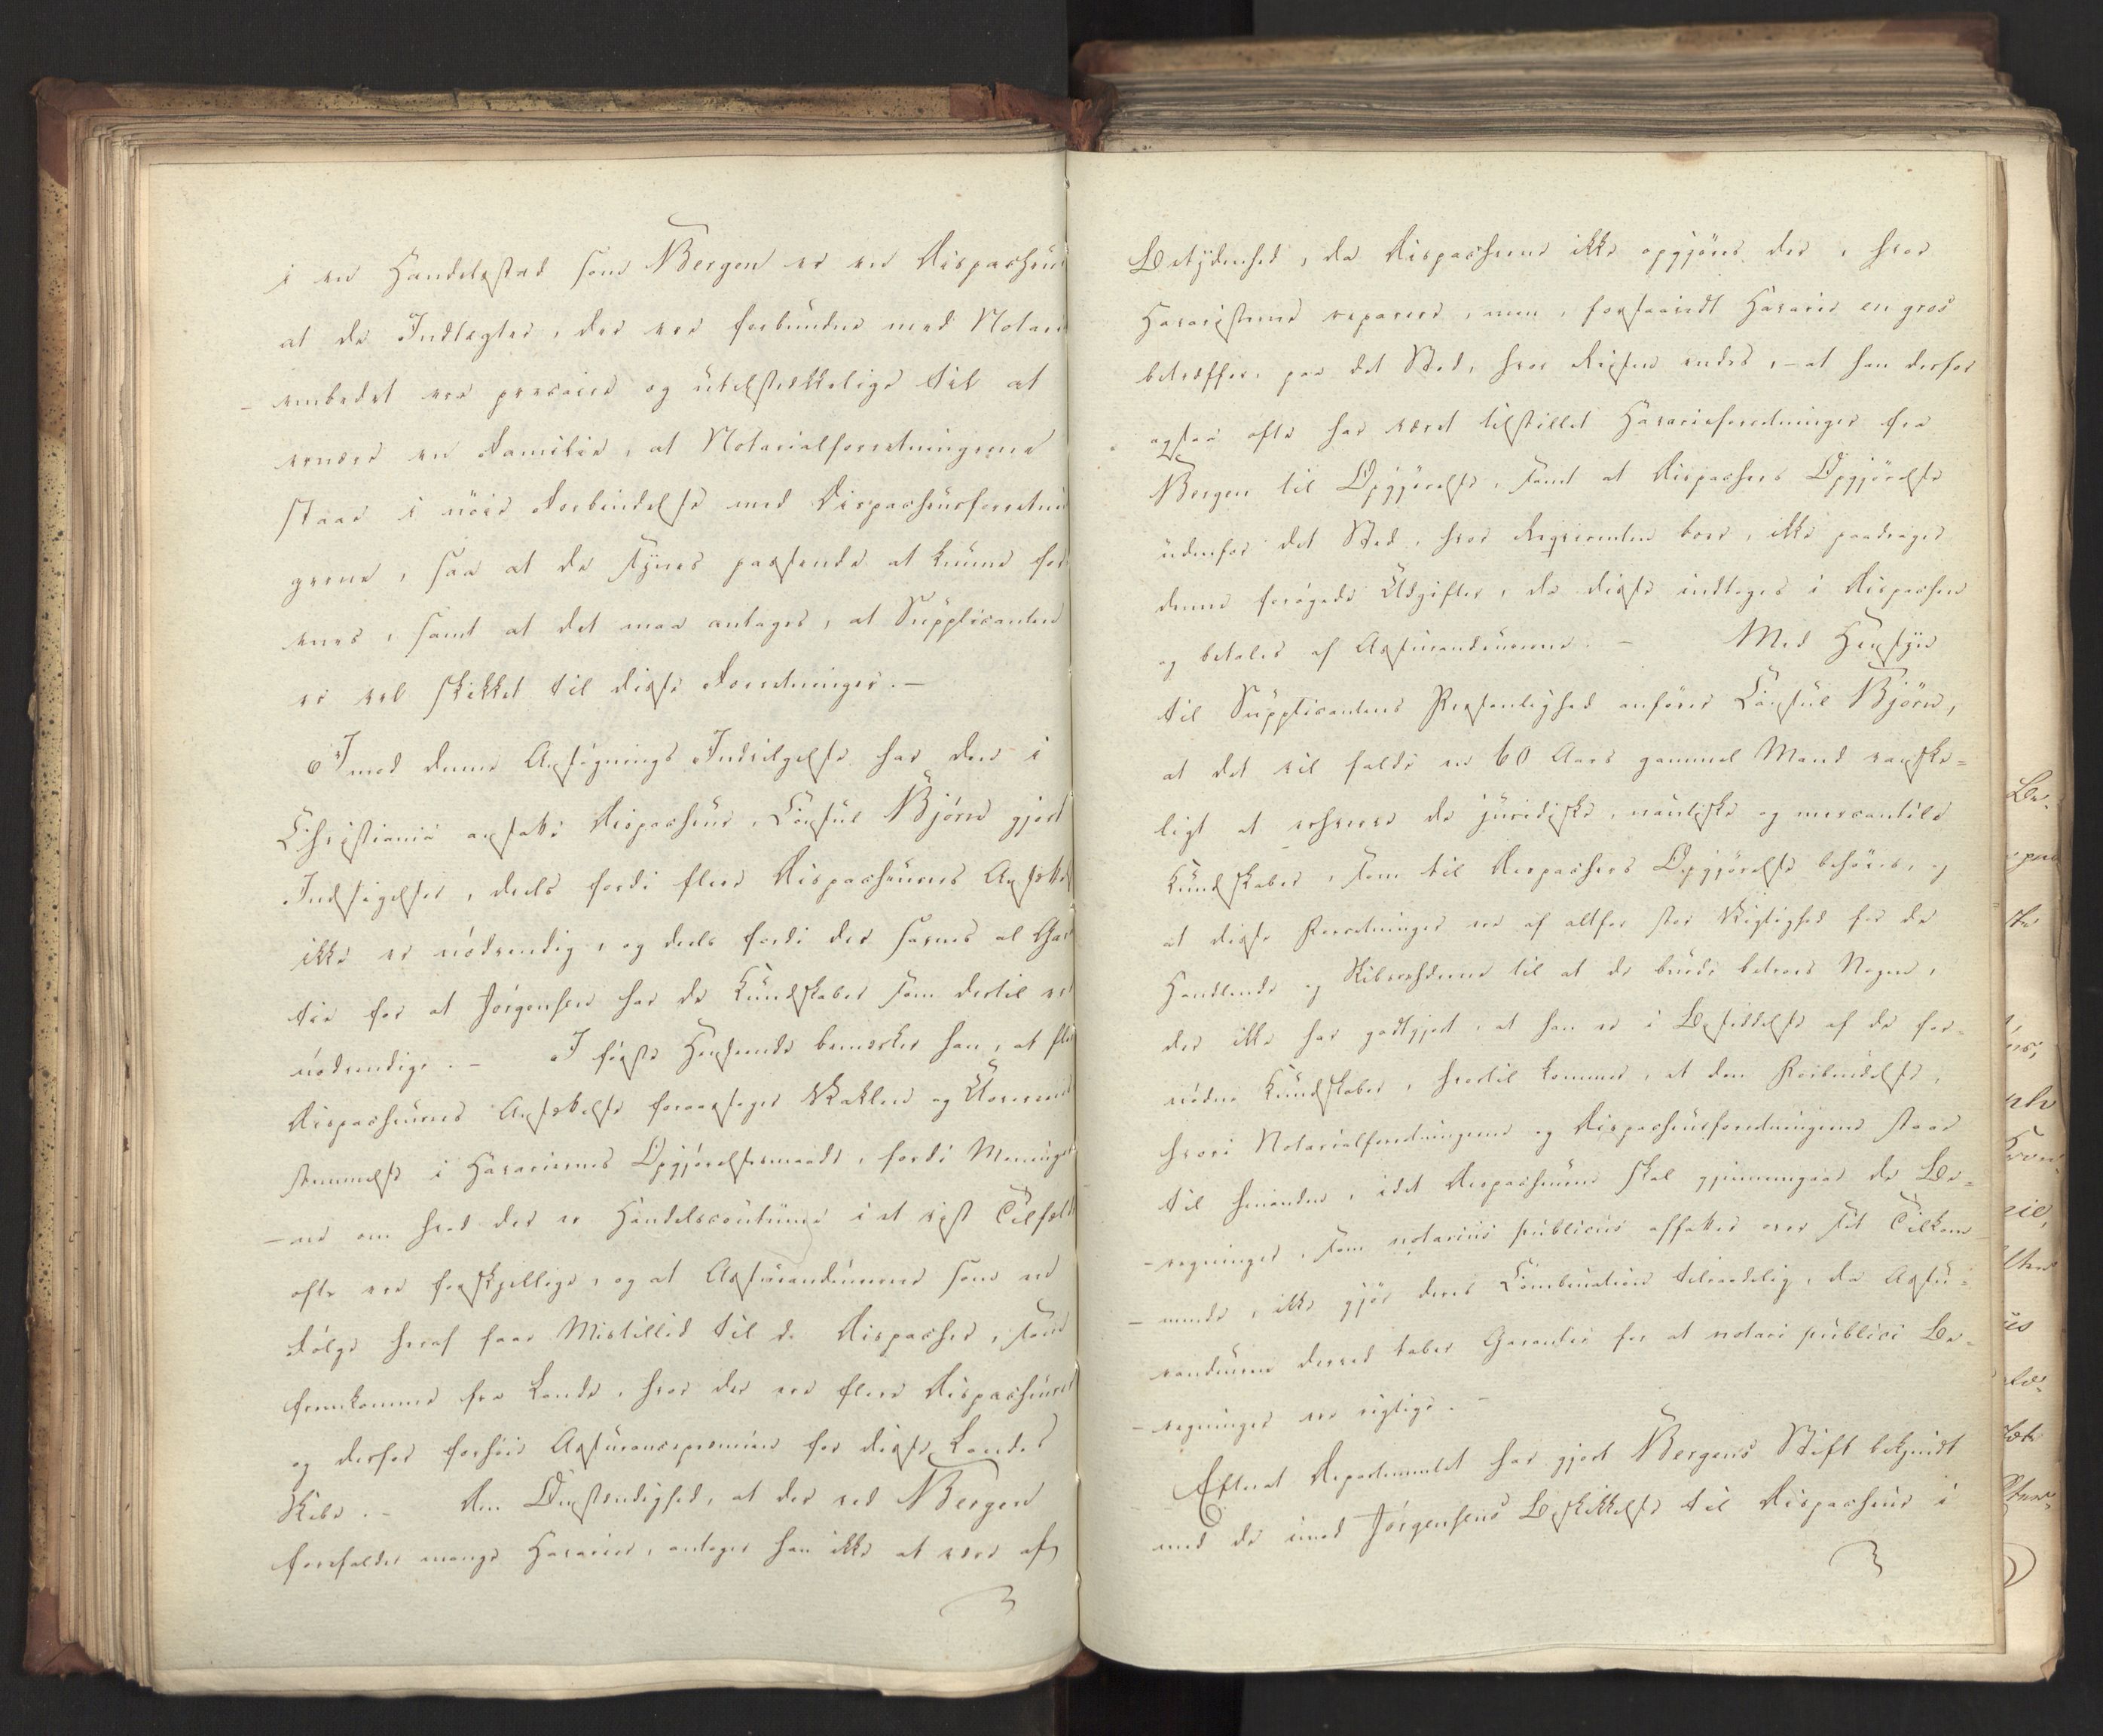 i en Handelsstad som Bergen er en Dispacheur
at de Indtægter, der ere forbundne med Notari
embedet ere precaire og utilstrækkelige til at
ernære en Familie, at Notarialforretningerne
staae i nöie Forbindelse med Dispacheurforretnin
gerne, saa at de synes passende at kunne for
enes, samt at det maa antages, at Supplicanten
er vel skikket til disse Forretninger. –
Imod denne Ansögnings Indvilgelse har den i
Christiania ansatte Dispacheur, Consul Björn gjort
Indsigelser, deels fordi flere Dispacheurers Ansættel
ikke er nödvendig, og deels fordi der savnes al Gar
tie for at Jörgensen har de Kundskaber som dertil er
nödvendige. – I förste Henseende bemærker han, at fle
Dispacheurers Ansættelse foraarsager Vaklen og Uoverens
stemmelse i Havariernes Opgjörelsesmaade, fordi Meninger
–ne om hvad der er Handelscoutume i et vist Tilfælde
ofte ere forskjellige, og at Assurandeurerne som en
Fölge heraf faae Mistillid til de Dispacher, som
fremkomme fra Lande, hvor der ere flere Dispacheurer
og derfor forhöie Assurancepræmien for disse Landes
Skibe. – Den Omstændighed, at der ved Bergen
forefalder mange Havarier, antager han ikke at være af
Betydenhed, da Dispacherne ikke opgjöres der, hvor
Havaristerne reparere, men, forsaavidt Havarie en gros
betræffer, paa det Sted, hvor Reisen endes, – at han derfor
ogsaa ofte har været tilstillet Havarieforretninger fra
Bergen til Opgjörelse, samt at Dispachers Opgjörelse
udenfor det Sted, hvor Reqvirenten boer, ikke paadrager
denne forögede Udgifter, da disse indtages i Dispachen
og betales af Assurandeurerne. – Med Hensyn
til Supplicantens Personlighed anförer Consul Björn,
at det vil falde en 60 Aars gammel Mand vanske=
ligt at erhverve de juridiske, nautiske og mercantile
Kundskaber, som til Dispachers Opgjörelse behöves, og
at disse Forretninger ere af altfor stor Vigtighed for de
Handlende og Skibsrhederne til at de burde betroes Nogen,
der ikke har godtgjort, at han er i Besiddelse af de for=
nödne Kundskaber, hvortil kommer, at den Forbindelse,
hvori Notarialforretningerne og Dispacheurforretningerne staae
til hinanden, idet Dispacheuren skal gjennemgaae de Be=
–regninger, som notarius publicus affatter over sit Tilkom
–mende, ikke gjör deres Combination tilraadelig, da Assu=
randeurerne derved taber Garantie for at notarii publici Be=
–regninger ere rigtige. –
Efterat Departementet har gjort Bergens Stift bekjendt
med de imod Jörgensens Beskikkelse til Dispacheur i